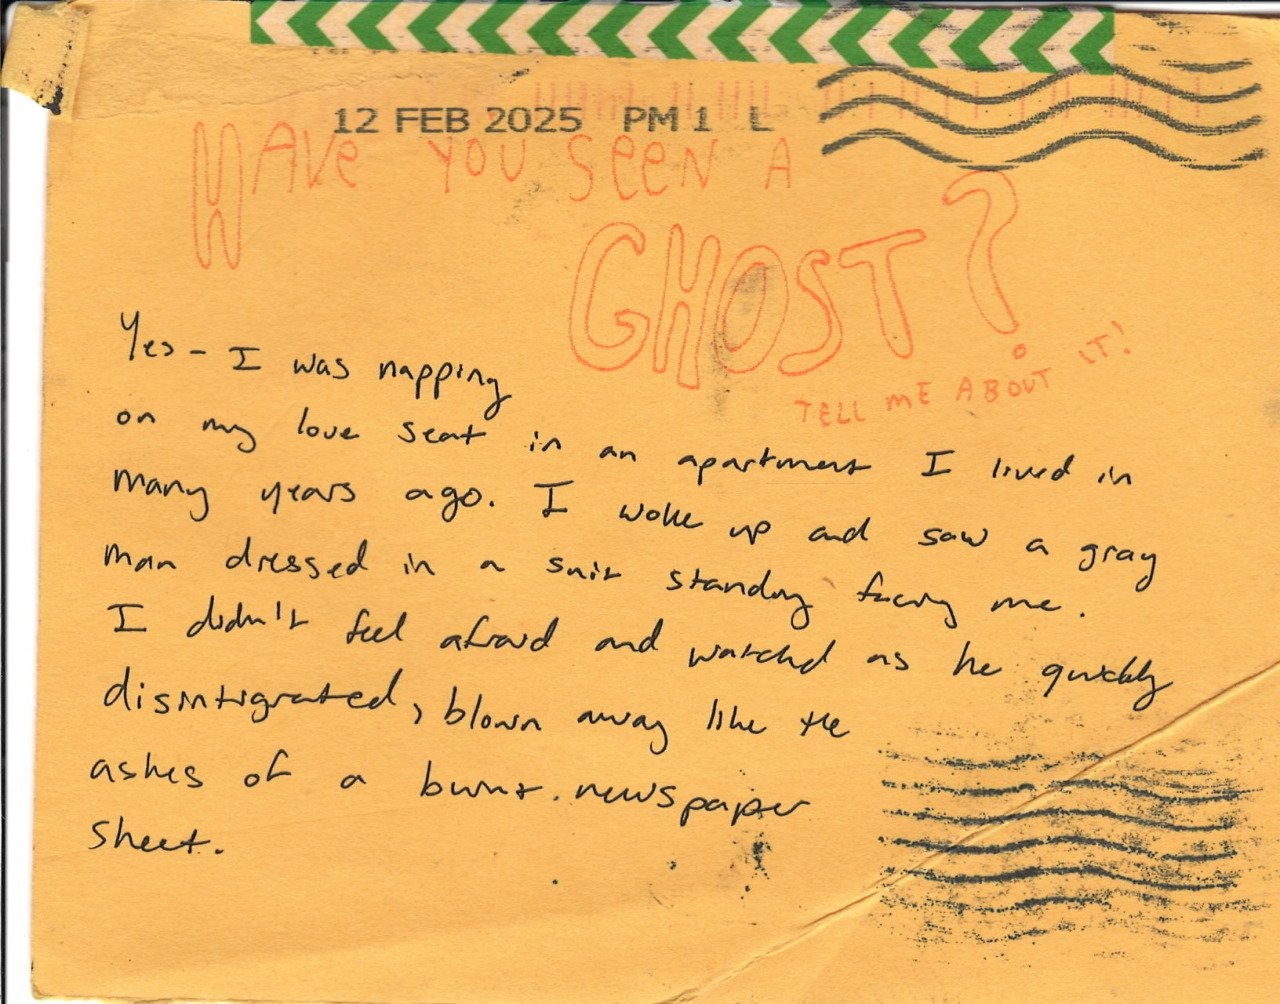 12 FEB 2025 PM 1 L
HAVe YOU SeeN A
GHOST?
TELL ME ABOUT IT!
Yes - I was napping
on my love seat in an apartment I lived in
many years ago. I woke up and saw a gray
man dressed in a suit standing facing me.
I didn't feel afraid and watched as he quickly
disintigrated, blown away like the
ashes of a burnt newspaper
sheet.